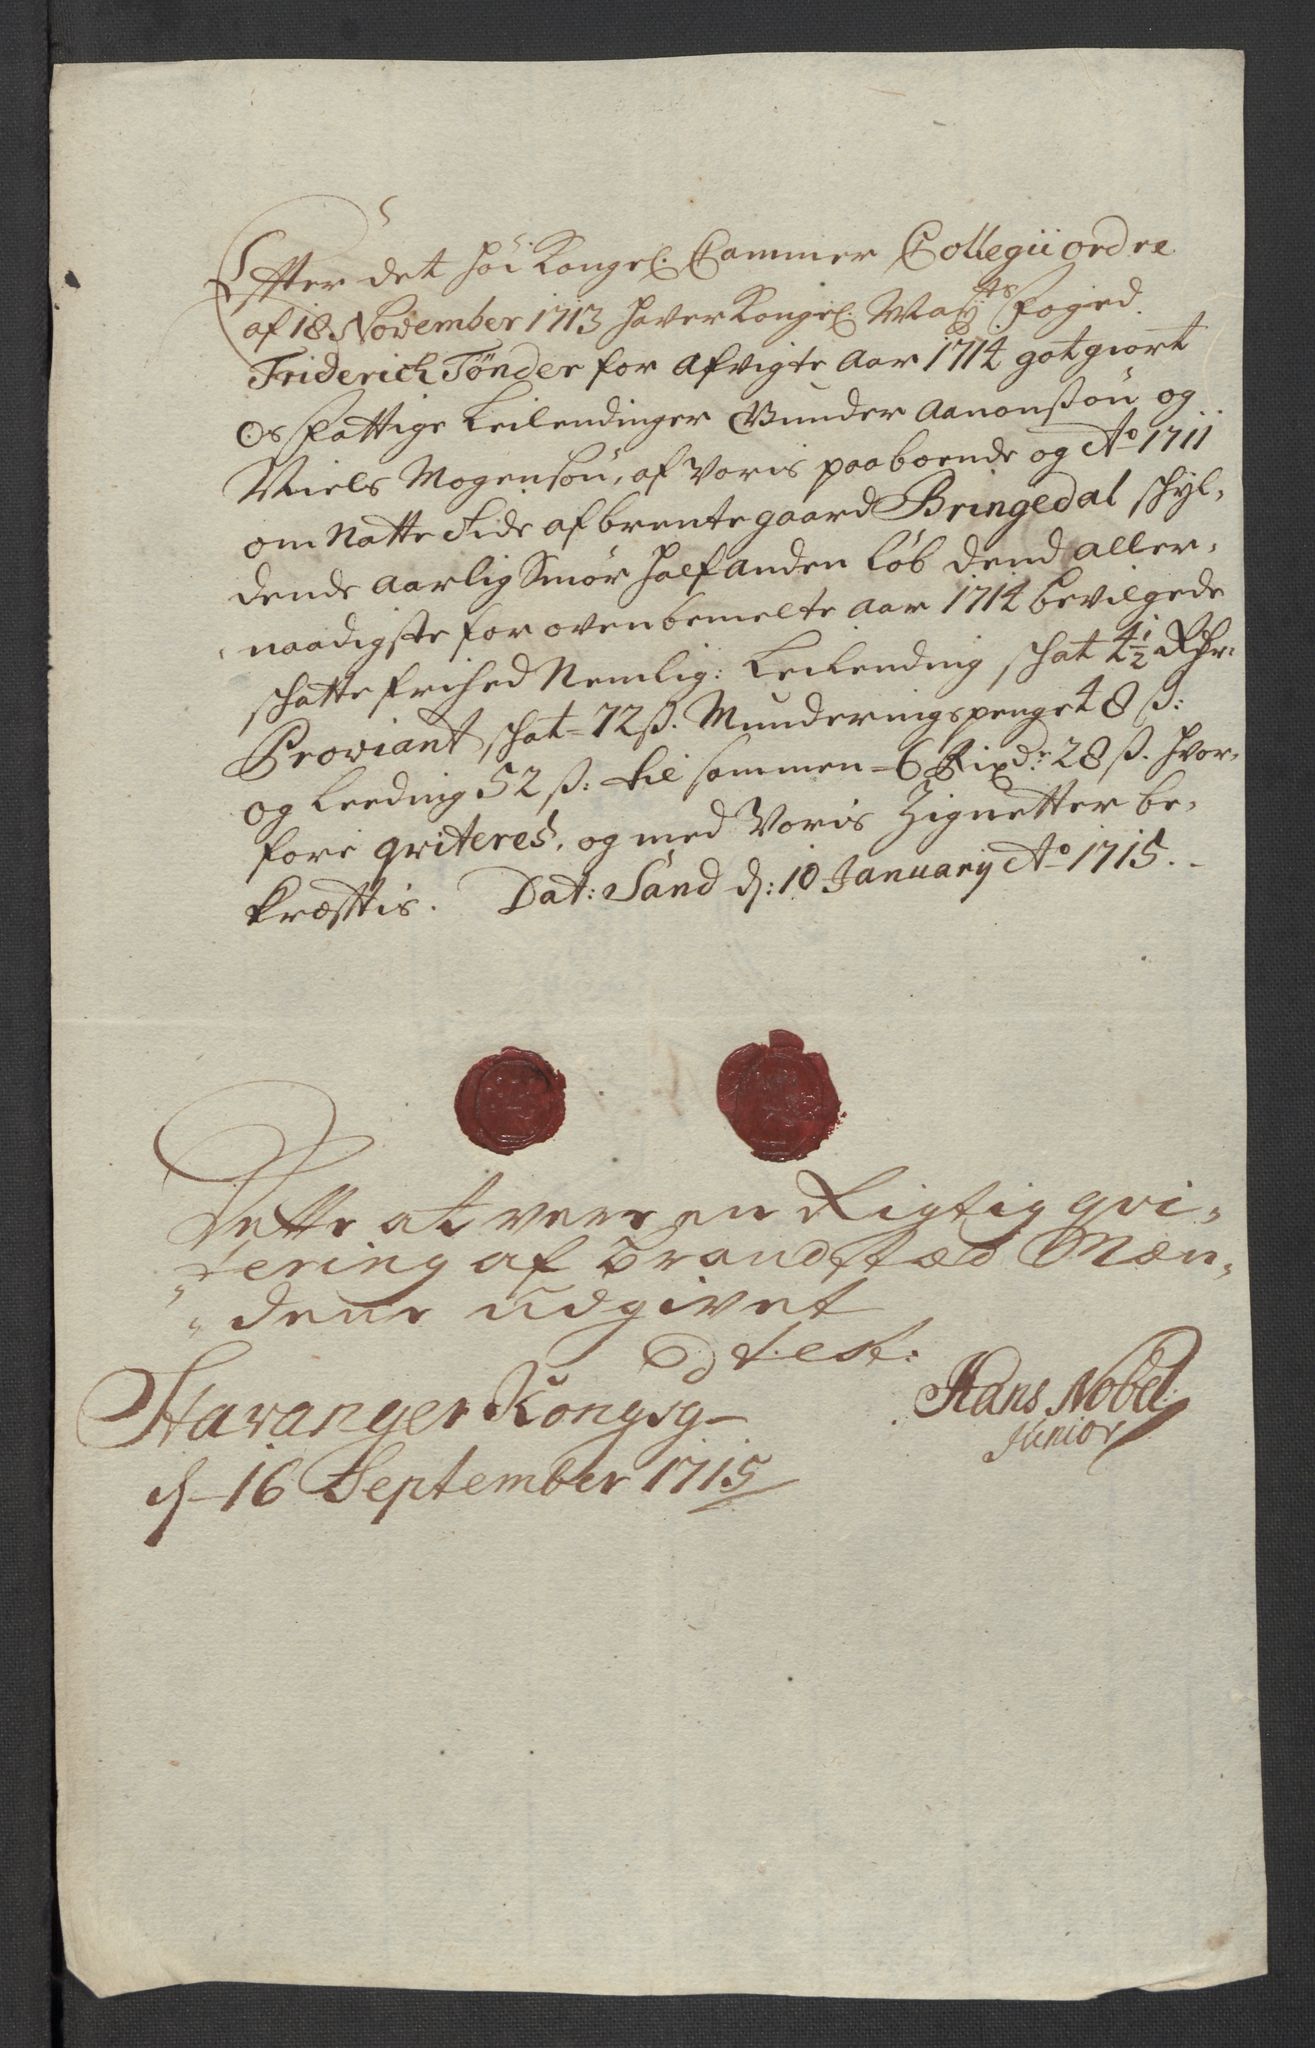 Effter det høi Kongel. Cammer Collegii ordre
af 18 November 1713 haver Kongel. May:ts foged
Friderich Tønder for afvigte aar 1714 gotgiort
os fattige Leilendinger Gunder Aanonsøn og
Niels Mogensøn, af voris paaboende og Ao 1711
om Natte Tide afbrente gaard Bringedal schyl,
dende aarlig Smør halfanden Løb dend aller,
naadigste for ovenbemelte aar 1714 bevilgede
schatte frihed Nemlig: Leilending schat 4½ Rdr:
Proviant schat = 72 ß. Munderingspenge 48 ß:
og Leeding 52 ß: til sammen = 6 Rixdr: 28 ß. hvor,
fore qviteres, og med Voris Zignetter be,
kræfftis. Dat: Sand d: 10 January Ao 1715.
Dette at vere en Rigtig qvi,
tering af brandsted Mæn,
dene udgivet
test:
Stavanger Kongsg
d 16 September 1715
Hans Nobel
Junior